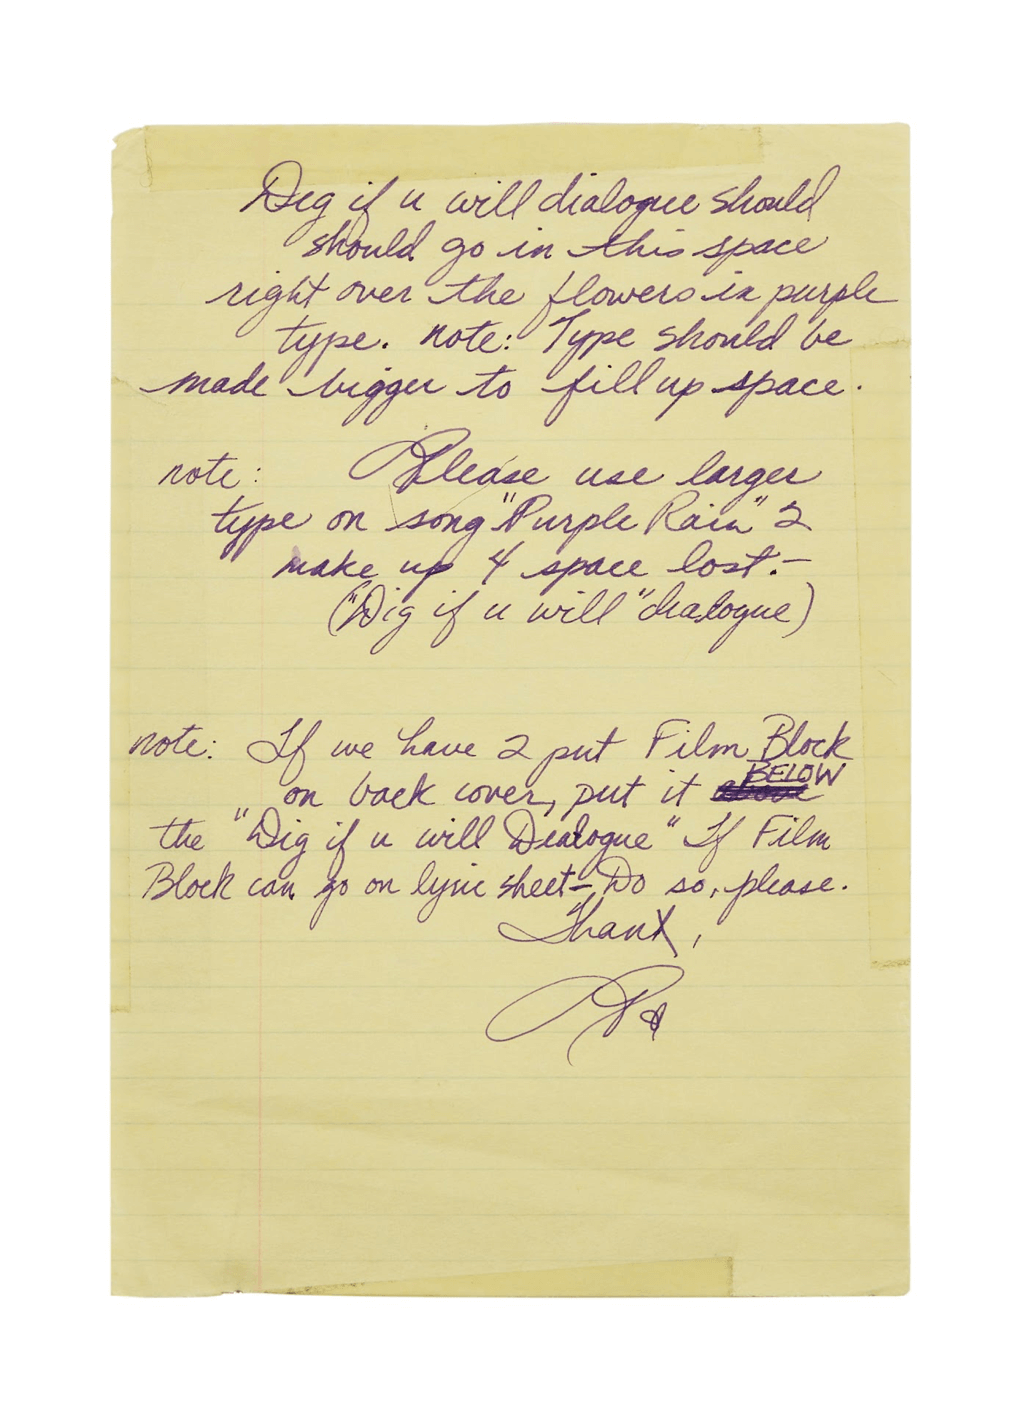 Dig if u will dialogue should
should go in this space
right over the flowers in purple
type. note: Type should be
made bigger to fill up space.
note: Please use larger
type on song "Purple Rain" 2
make up 4 space lost.-
("Dig if u will" dialogue)
note: If we have 2 put Film Block
on back cover, put it BELOW
the "Dig if u will Dialogue" If Film
Block can go on lyric sheet- Do so, please.
ThanX,